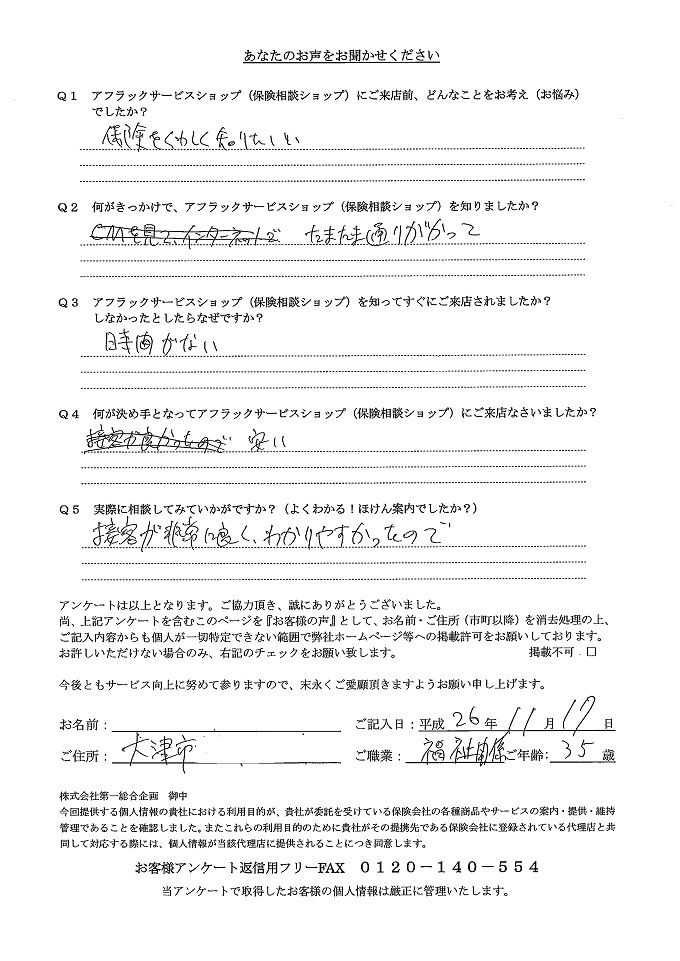 あなたのお声をお聞かせください
Q1 アフラックサービスショップ（保険相談ショップ）にご来店前、どんなことをお考え（お悩み）
でしたか？
保険をくわしく知りたい
Q2 何がきっかけで、アフラックサービスショップ（保険相談ショップ）を知りましたか？
CMを見て、インターネットで たまたま通りがかって
Q3 アフラックサービスショップ（保険相談ショップ）を知ってすぐにご来店されましたか？
しなかったとしたらなぜですか？
時間がない
Q4 何が決め手となってアフラックサービスショップ（保険相談ショップ）にご来店なさいましたか？
接客が良かったので 安い
Q5 実際に相談してみていかがですか？（よくわかる！ほけん案内でしたか？）
接客が非常に良く、わかりやすかったので
アンケートは以上となります。ご協力頂き、誠にありがとうございました。
尚、上記アンケートを含むこのページを『お客様の声』として、お名前・ご住所（市町以降）を消去処理の上、
ご記入内容からも個人が一切特定できない範囲で弊社ホームページ等への掲載許可をお願いしております。
お許しいただけない場合のみ、右記のチェックをお願い致します。 掲載不可 □
今後ともサービス向上に努めて参りますので、末永くご愛願頂きますようお願い申し上げます。
お名前： ご記入日：平成 26 年 11 月 17 日
ご住所： 大津市 ご職業： 福祉関係 ご年齢： 35 歳
株式会社第一総合企画 御中
今回提供する個人情報の貴社における利用目的が、貴社が委託を受けている保険会社の各種商品やサービスの案内・提供・維持
管理であることを確認しました。またこれらの利用目的のために貴社がその提携先である保険会社に登録されている代理店と共
同して対応する際には、個人情報が当該代理店に提供されることにつき同意します。
お客様アンケート返信用フリーFAX 0120－140－554
当アンケートで取得したお客様の個人情報は厳正に管理いたします。